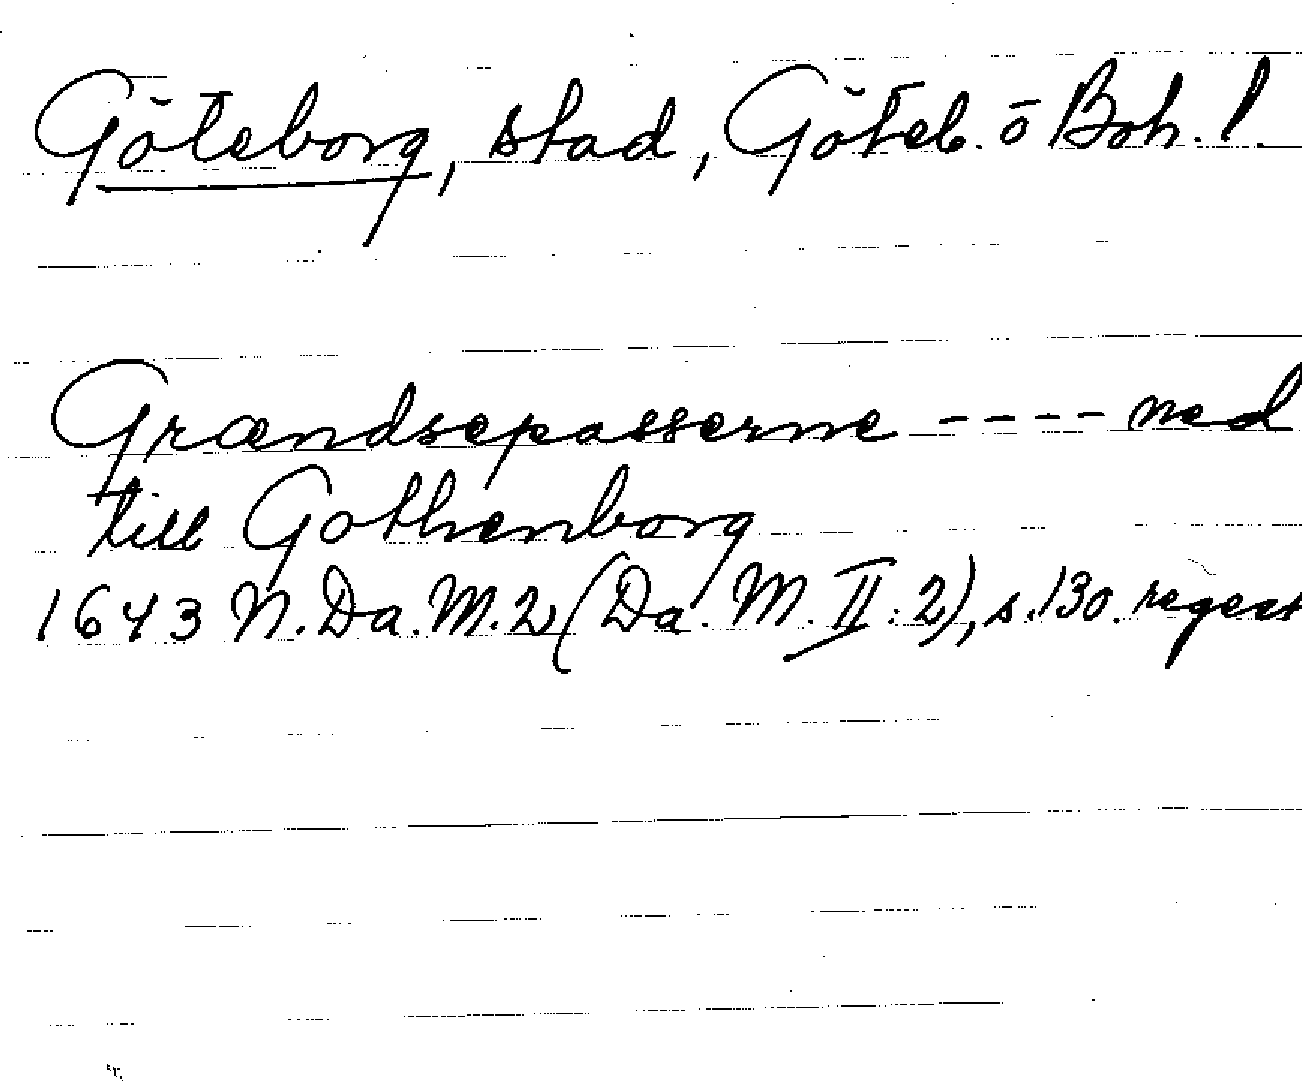 Göteborg, stad, Göteb. o Boh. l.
Grændsepasserne - - - - ned
till Gothenborg
1643 N. Da. M. 2 (Da. M. II: 2), s. 130. regest